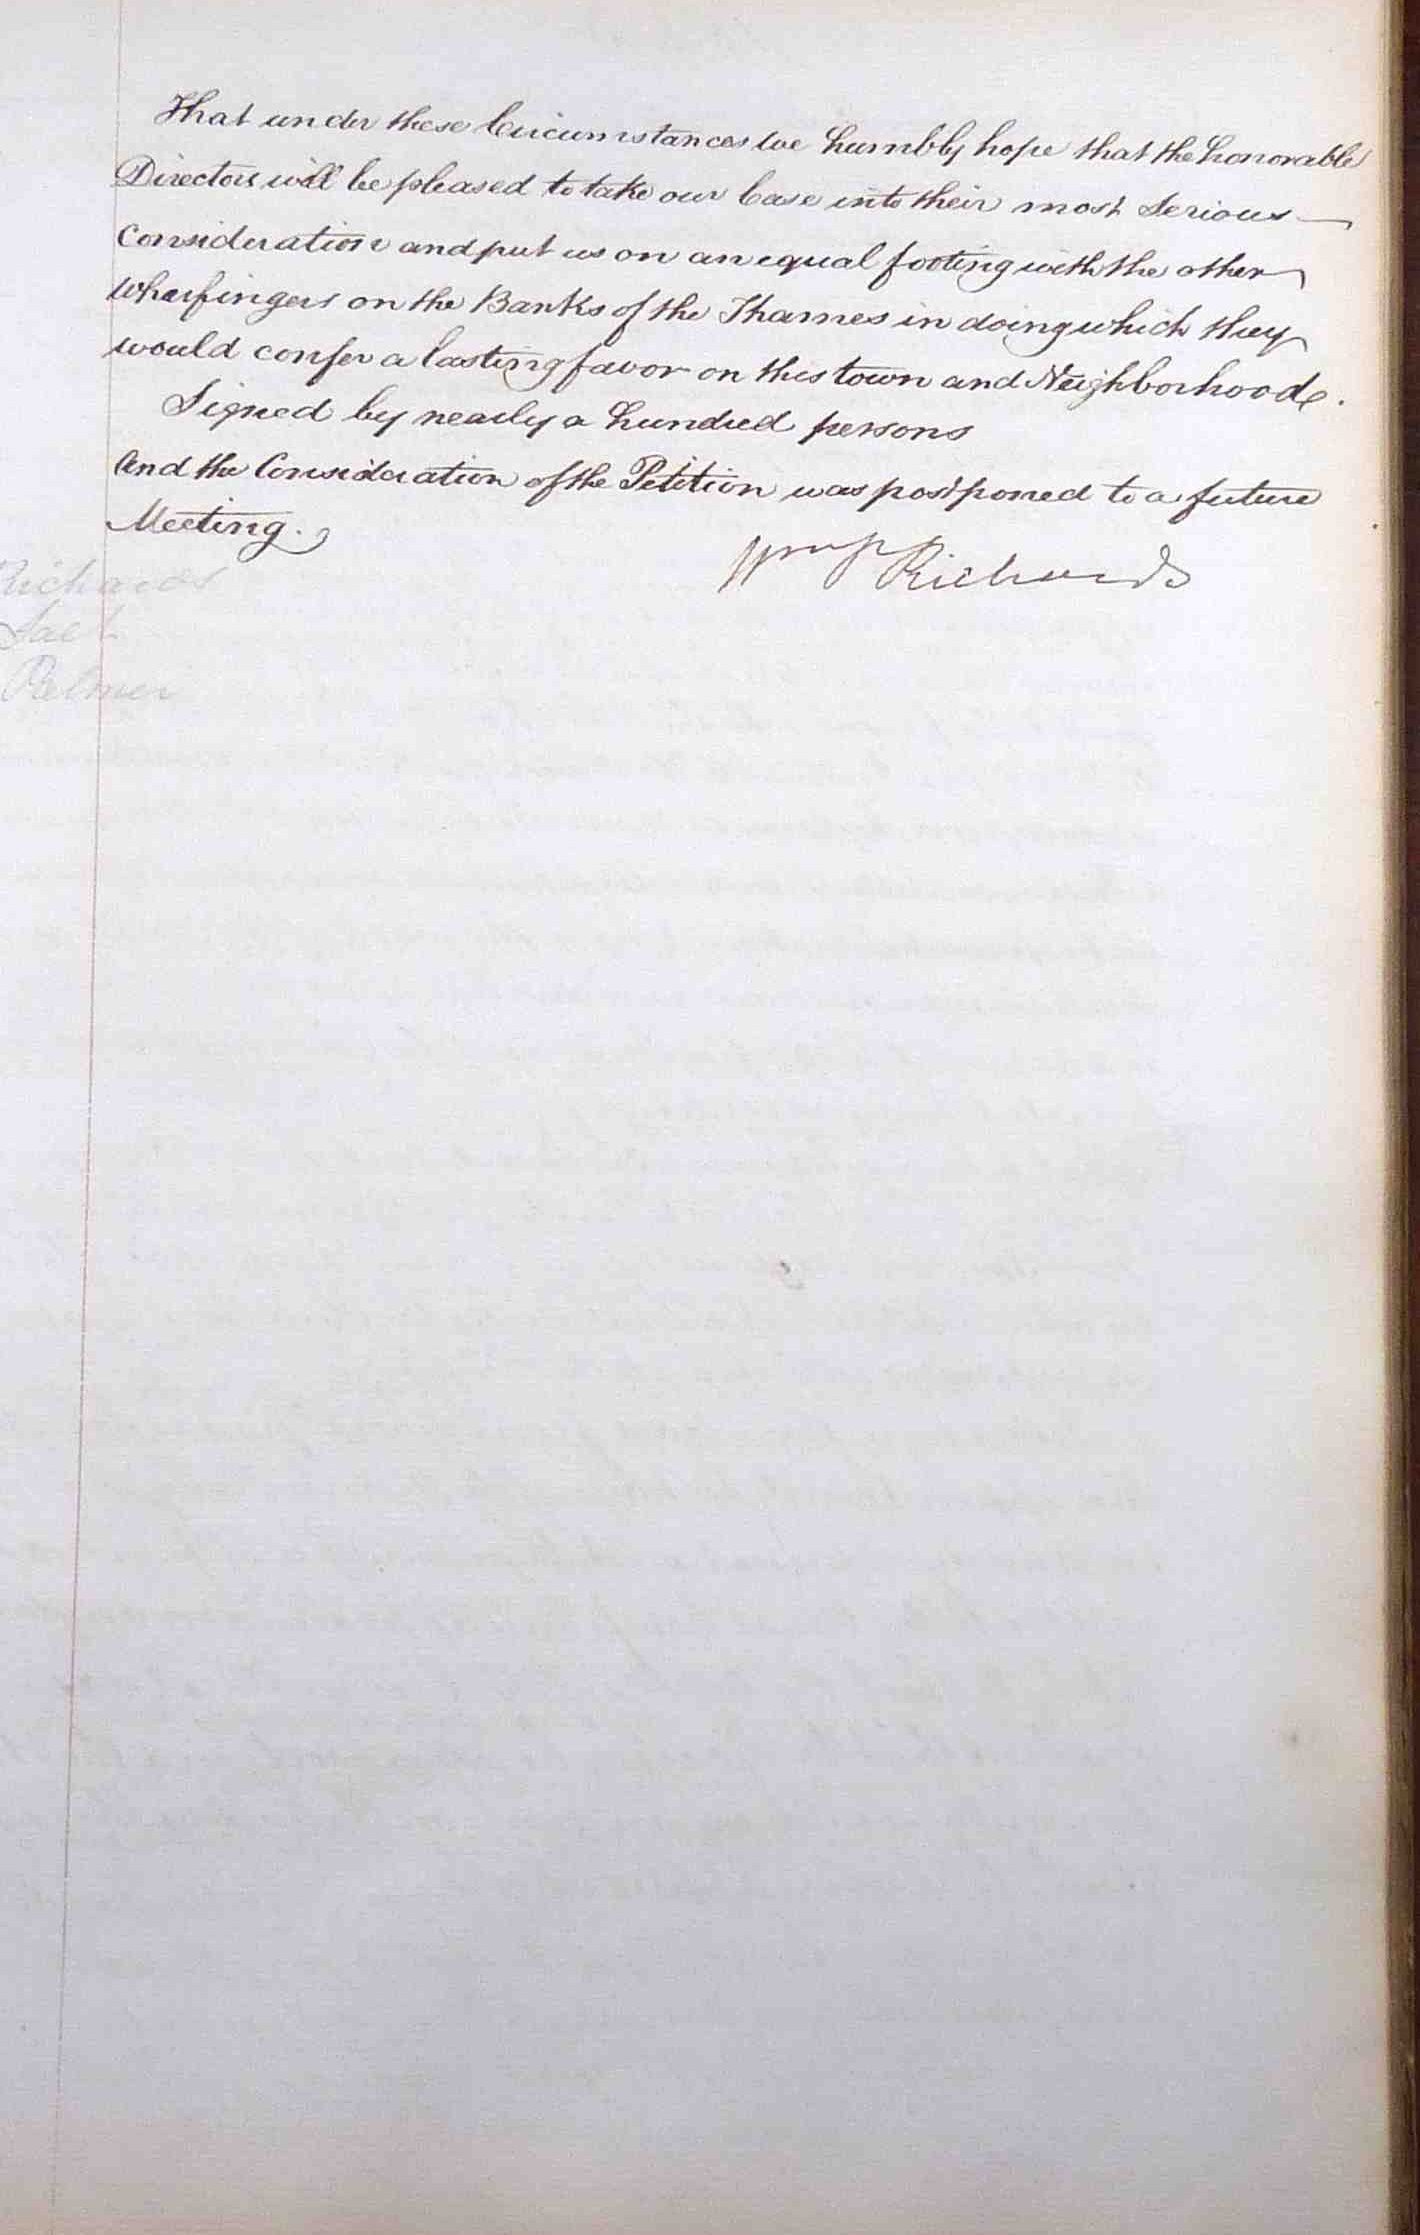 That under these Circumstances we humbly hope that the honorable
Directors will be pleased to take our Case into their most Serious
Consideration and put us on an equal footing with the other
Wharfingers on the Banks of the Thames in doing which they
would confer a lasting favor on this town and Neighborhood.
Signed by nearly a hundred persons
And the Consideration of the Petition was postponed to a future
Meeting.
Richards
Richards
Palmer